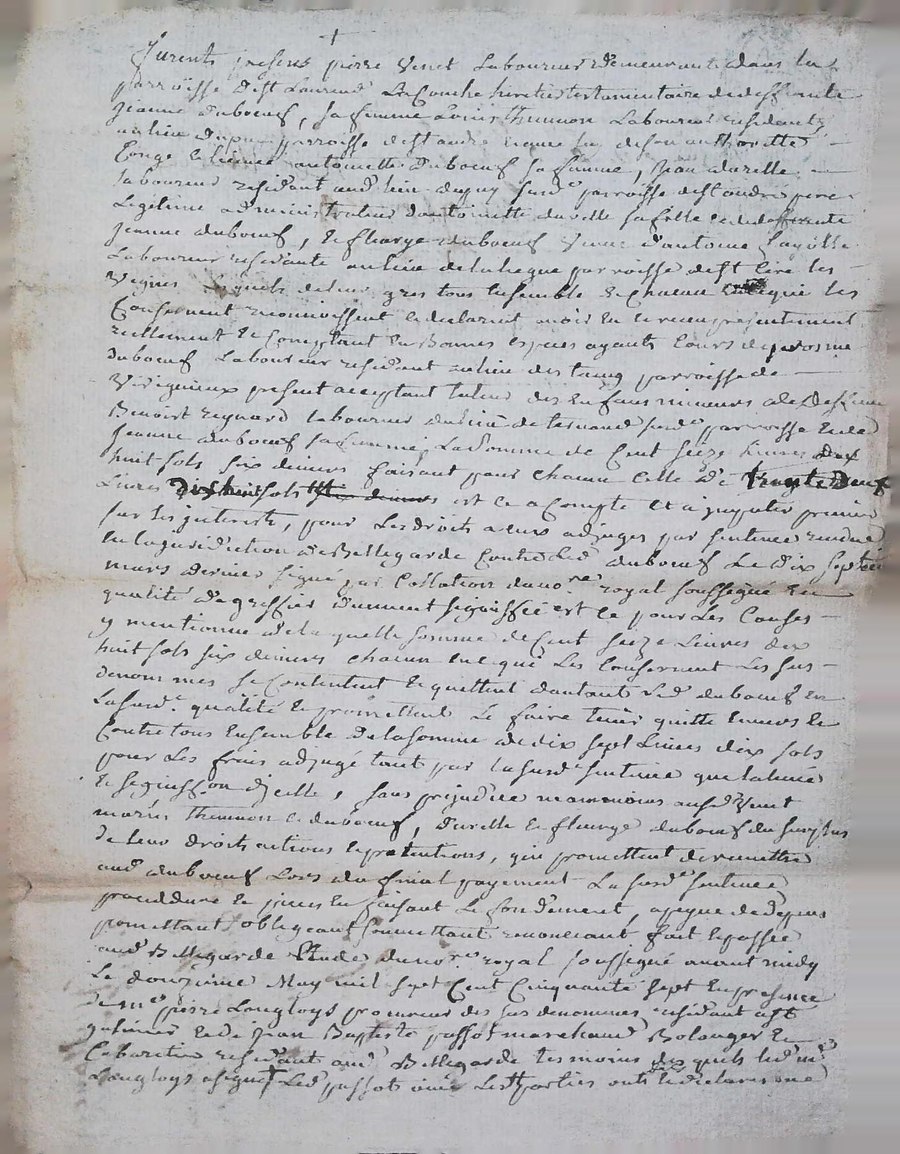 +
Furents presens pierre Venet Laboureur demeurant dans la
parroisse de St Laurend La Conche heretier testamentaire de deffunte
Jeanne duboeuf, sa femme Louis thunnon Laboureur residents
au lieu du parroisse de St andre ... de son authorette
Conge Licence antoinette Duboeuf sa femme, Jean durelle
laboureur residant aud lieu du puy susde parroisse de St andre pere
Legitime administrateur d'antoinette durelle sa fille et de deffunte
Jeanne duboeuf, et fleurge duboeuf Veuve d'antoine
Laboureur residante au lieu de la parroisse de St Cire les
Vignes Lesquels de leur gres tous Ensemble et Chacun En ce qui les
Consernent reconnoissent et declarent avoir Eu et receu presentement
reellement et Comptant En Bonnes especes ayants Cours de
duboeuf Laboureur residant au lieu des tang parroisse de
Virigneux present acceptant tuteur des Enfans mineurs de Deffunt
Benoist reynard laboureur dud lieu de susde parroisse et de
Jeanne duboeuf sa femme, La Somme de Cent Seize livres dix
huit sols six deniers faisant pour chacun Celle de trente Neuf
Livres Dix huit sols six deniers et ce a Compte et a imputer premier
sur les interests, pour Les droits a eux adjuges par sentence rendue
en la juridiction de Bellegarde Contre Led duboeuf Le dix septie
mars dernier signé par Collation du nore royal soussigné En
qualité de greffier duement signiffiée est ce pour Les Causes
y mentionne de la quelle somme de Cent seize Livres dix
huit sols six deniers chacun En ce qui Les Consernent Les sus
denommes se Contentent et quittent d'autant Led duboeuf En
La susde qualité et promettent Le faire tenir quitte Envers et
Contre tous Ensemble de la somme de dix sept Livres dix sols
pour Les frais adjuge tant par la susde sentence que
et signiffon d'jcelle, sans prejudice neammoins ausds Venet
mariés thunnon et duboeuf, durelle et fleurge duboeuf du surplus
de leur droits actions et pretentions, qui promettent de remettre
aud duboeuf Lors du final payement La susde sentence
proceddure et pieces En faisant Le fondement, a peyne de depens
promettant obligeant soumettant renonceant fait et passée
aud Bellegarde Etude du nore royal soussigné avant midy
Le douzieme May mil sept Cent Cinquante sept En presence
de me pierre Langloys procureur des sus denommes residant a St
galmier et de Jean Baptiste passot marchand Bolanger et
Cabaretier residant aud Bellegarde temoins des quels led me
Langloys a signé Led passot avec Les parties onts declares ne